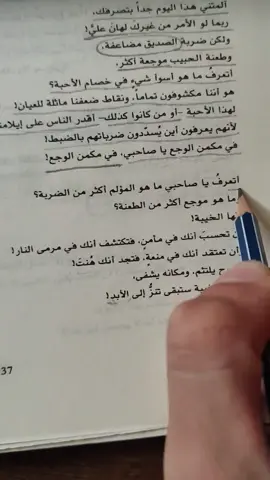 آلمتني هذا اليوم جداً بتصرفك،
ربما لو الأمر من غيرك لهان عليَّ!
ولكن ضربة الصديق مضاعفة،
وطعنة الحبيب موجعة أكثر.
أتعرفُ ما هو أسوأ شيء في خصام الأحبة؟
هو أننا مكشوفون تماماً، ونقاط ضعفنا ماثلة للعيان!
لهذا الأحبة -أو من كانوا كذلك- أقدر الناس على إيلامنا
لأنهم يعرفون أين يُسدّدون ضرباتهم بالضبط!
في مكمن الوجع يا صاحبي، في مكمن الوجع!
أتعرفُ يا صاحبي ما هو المؤلم أكثر من الضربة؟
ما هو موجع أكثر من الطعنة؟
الخيبة!
تحسبَ أنك في مأمنٍ، فتكتشف أنك في مرمى النار!
أن تعتقد أنك في منعةٍ، فتجد أنك هُنتَ!
يلتئم، ومكانه يشفى،
ستبقى تنزُّ إلى الأبد!
37